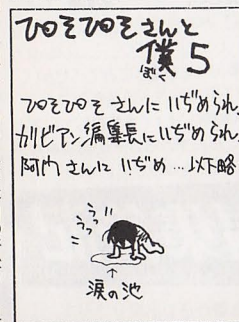 ぴそぴそさんと
僕5
ぼく
ぴそぴそさんにいぢめられ、
ガリビアン編集長にいぢめられ、
阿内さんにいぢめ…以下略
うっ
うっ
うっ
↑
涙の池